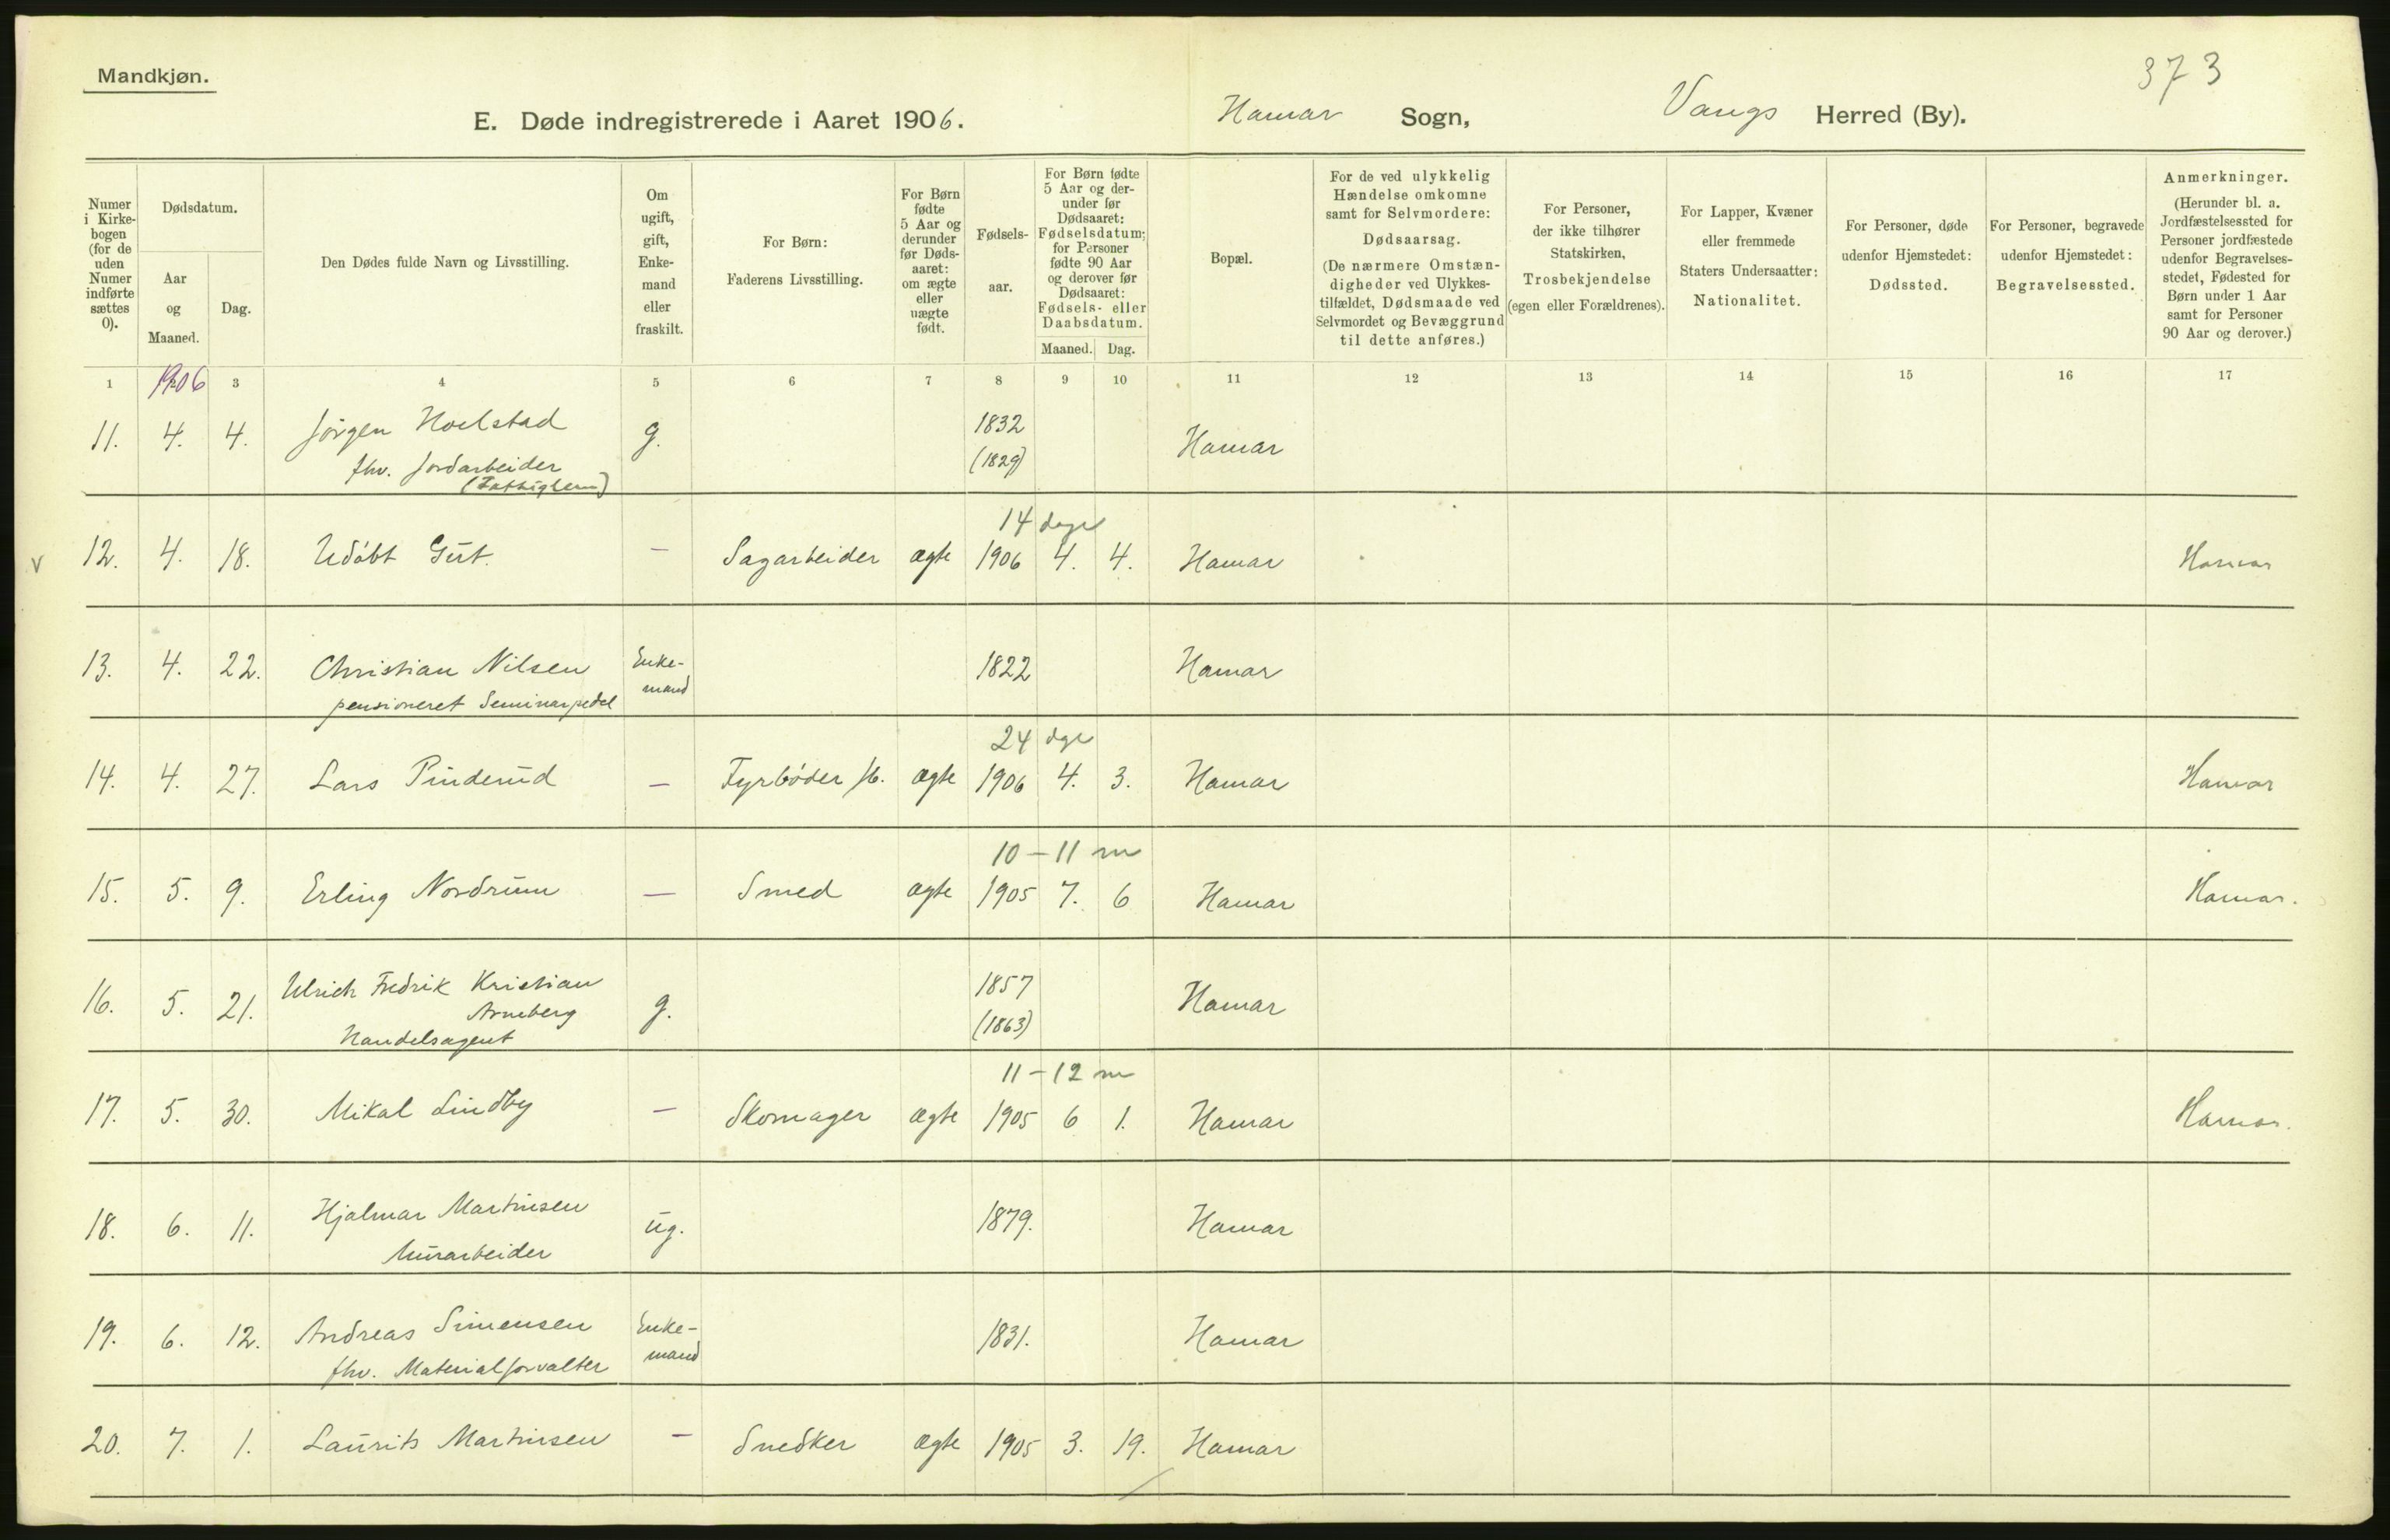 Mandkjøn.
373
E. Døde indregistrerede i Aaret 1906. Hamar Sogn, Vangs Herred (By).
Numer i Kirkebogen (for de uden Numer indførte sættes 0).
Dødsdatum.
Aar og Maaned.
Dag.
Den Dødes fulde Navn og Livsstilling.
Om ugift, gift, Enkemand eller fraskilt.
For Børn: Faderens Livsstilling.
For Børn fødte 5 Aar og derunder før Dødsaaret: om ægte eller uægte født.
Fødselsaar.
For Børn fødte 5 Aar og derunder før Dødsaaret: Fødselsdatum; for Personer fødte 90 Aar og derover før Dødsaaret: Fødsels- eller Daabsdatum.
Maaned. Dag.
Bopæl.
For de ved ulykkelig Hændelse omkomne samt for Selvmordere: Dødsaarsag. (De nærmere Omstændigheder ved Ulykkestilfældet, Dødsmaade ved Selvmordet og Bevæggrund til dette anføres.)
For Personer, der ikke tilhører Statskirken, Trosbekjendelse (egen eller Forældrenes).
For Lapper, Kvæner eller fremmede Staters Undersaatter: Nationalitet.
For Personer, døde udenfor Hjemstedet: Dødssted.
For Personer, begravede udenfor Hjemstedet: Begravelsessted.
Anmerkninger. (Herunder bl. a. Jordfæstelsessted for Personer jordfæstede udenfor Begravelsesstedet, Fødested for Børn under 1 Aar samt for Personer 90 Aar og derover.)
1 1906 3 4 5 6 7 8 9 10 11 12 13 14 15 16 17
11. 4. 4. Jørgen Hoelstad g. 1832 Hamar
fhv. Jordarbeider (1829)
(Fattiglem)
14 dage
v 12. 4. 18. Udøbt Gut. — Sagarbeider ægte 1906 4. 4. Hamar Hamar
13. 4. 22. Christian Nilsen Enke- 1822 Hamar
pensioneret Seminarpedel mand
24 dge
14. 4. 27. Lars Pinderud — Fyrbøder Jb. ægte 1906 4. 3. Hamar Hamar
10 – 11 m
15. 5. 9. Erling Nordrum — Smed ægte 1905 7. 6 Hamar Hamar.
16. 5. 21. Ulrich Fredrik Kristian g. 1857 Hamar
Arneberg (1863)
Handelsagent
11 – 12 m
17. 5. 30. Mikal Lindby — Skomager ægte 1905 6 1. Hamar Hamar.
18. 6. 11. Hjalmar Martinsen ug. 1879. Hamar
Murarbeider
19. 6. 12. Andreas Simensen Enke- 1831. Hamar
fhv. Materialforvalter mand
20. 7. 1. Laurits Martinsen — Snedker ægte 1905 3. 19. Hamar